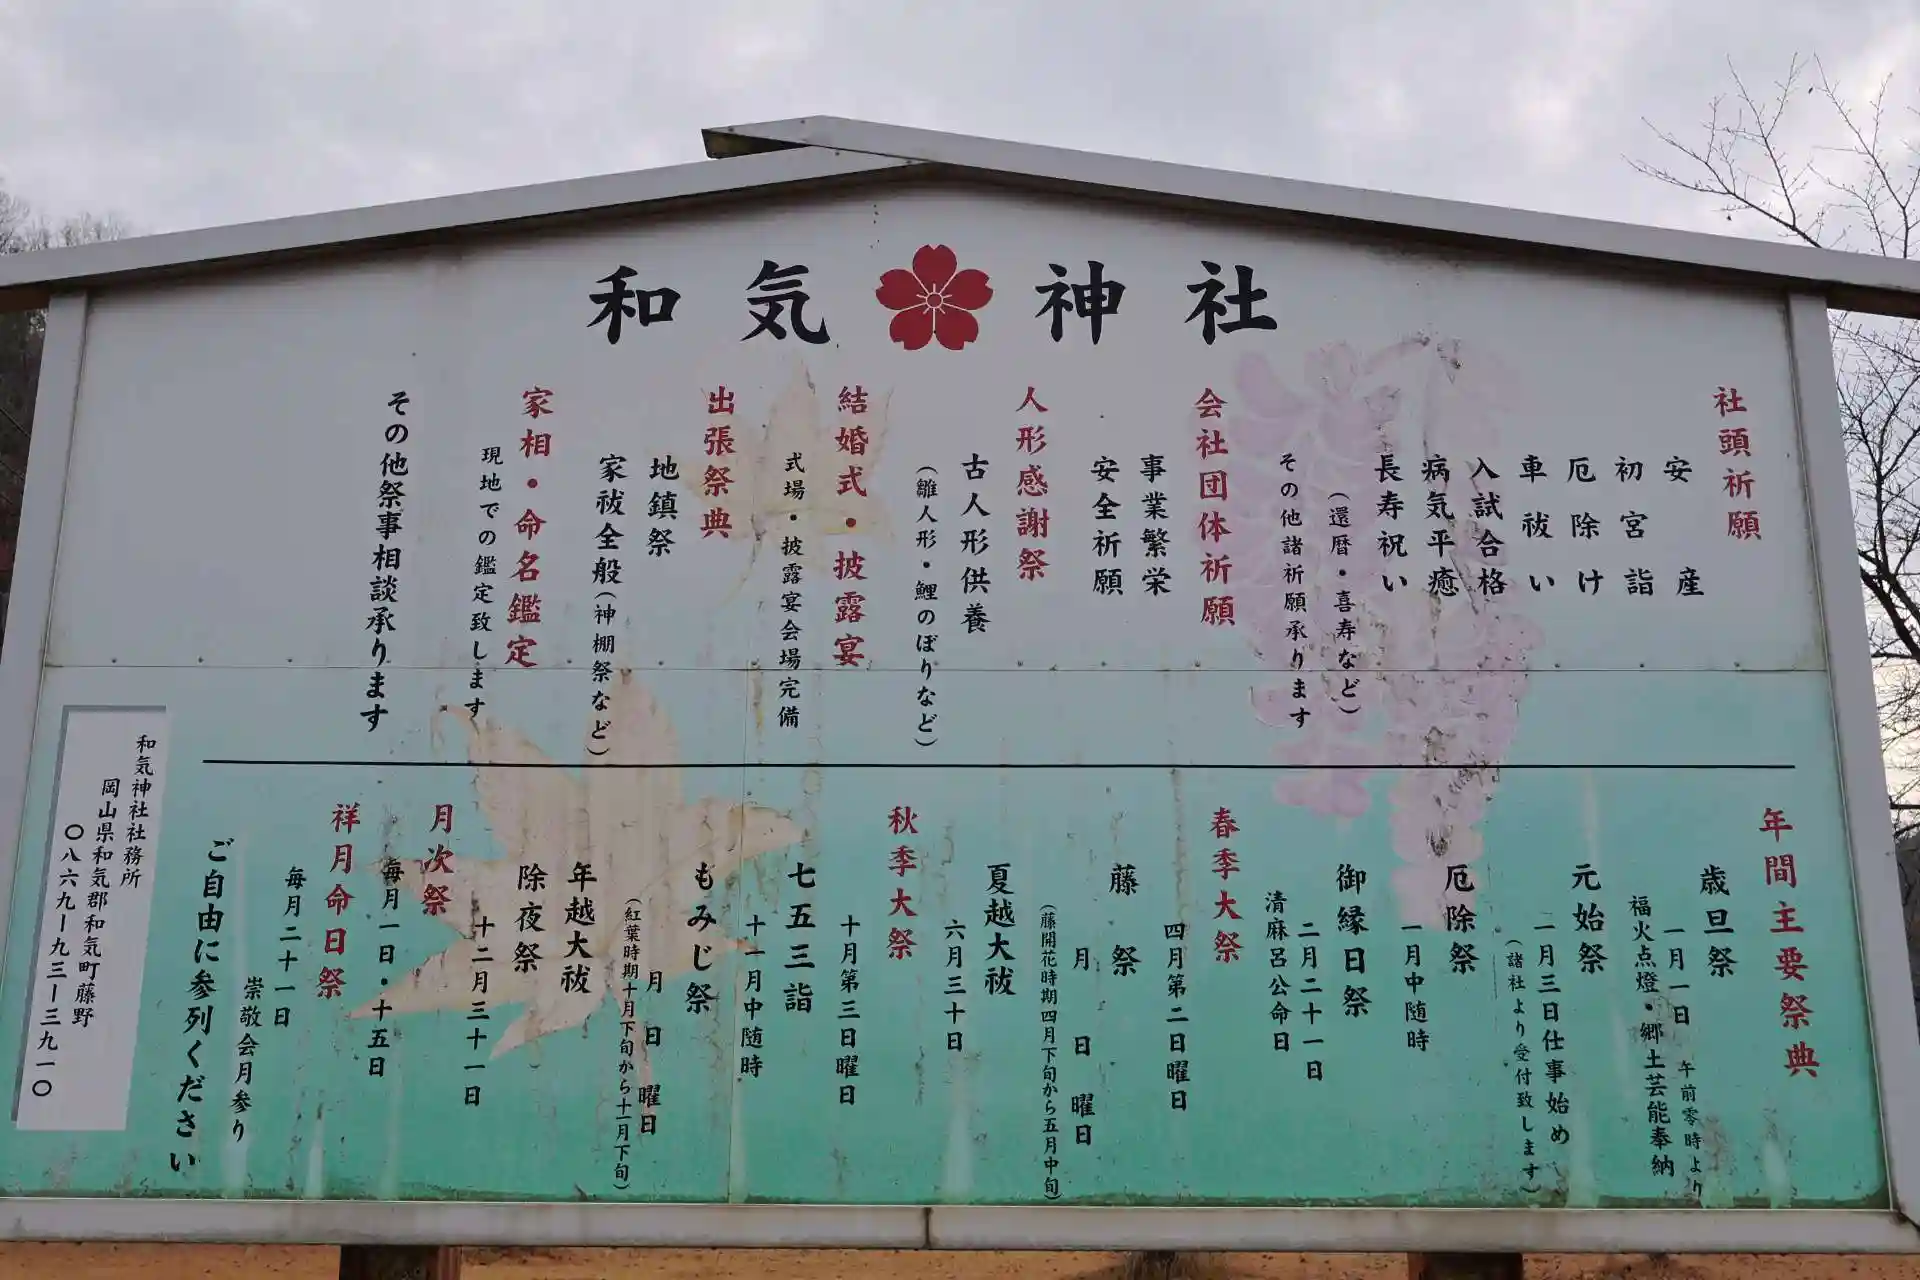 和気神社
社頭祈願
安産
初宮詣
厄除け
車祓い
入試合格
病気平癒
長寿祝い
(還暦・喜寿など)
その他諸祈願承ります
会社団体祈願
事業繁栄
安全祈願
人形感謝祭
古人形供養
(雛人形・鯉のぼりなど)
結婚式・披露宴
式場・披露宴会場完備
出張祭典
地鎮祭
家祓全般(神棚祭など)
家相・命名鑑定
現地での鑑定致します
その他祭事相談承ります
年間主要祭典
歳旦祭
一月一日 午前零時より
福火点燈・郷土芸能奉納
元始祭
一月三日仕事始め
(諸社より受付致します)
厄除祭
一月中随時
御縁日祭
二月二十一日
清麻呂公命日
春季大祭
四月第二日曜日
藤祭
月 日 曜日
(藤開花時期四月下旬から五月中旬)
夏越大祓
六月三十日
秋季大祭
十月第三日曜日
七五三詣
十一月中随時
もみじ祭
月 日 曜日
(紅葉時期十月下旬から十一月下旬)
年越大祓
除夜祭
十二月三十一日
月次祭
毎月一日・十五日
祥月命日祭
毎月二十一日
崇敬会月参り
ご自由に参列ください
和気神社社務所
岡山県和気郡和気町藤野
〇八六九ー九三ー三九一〇